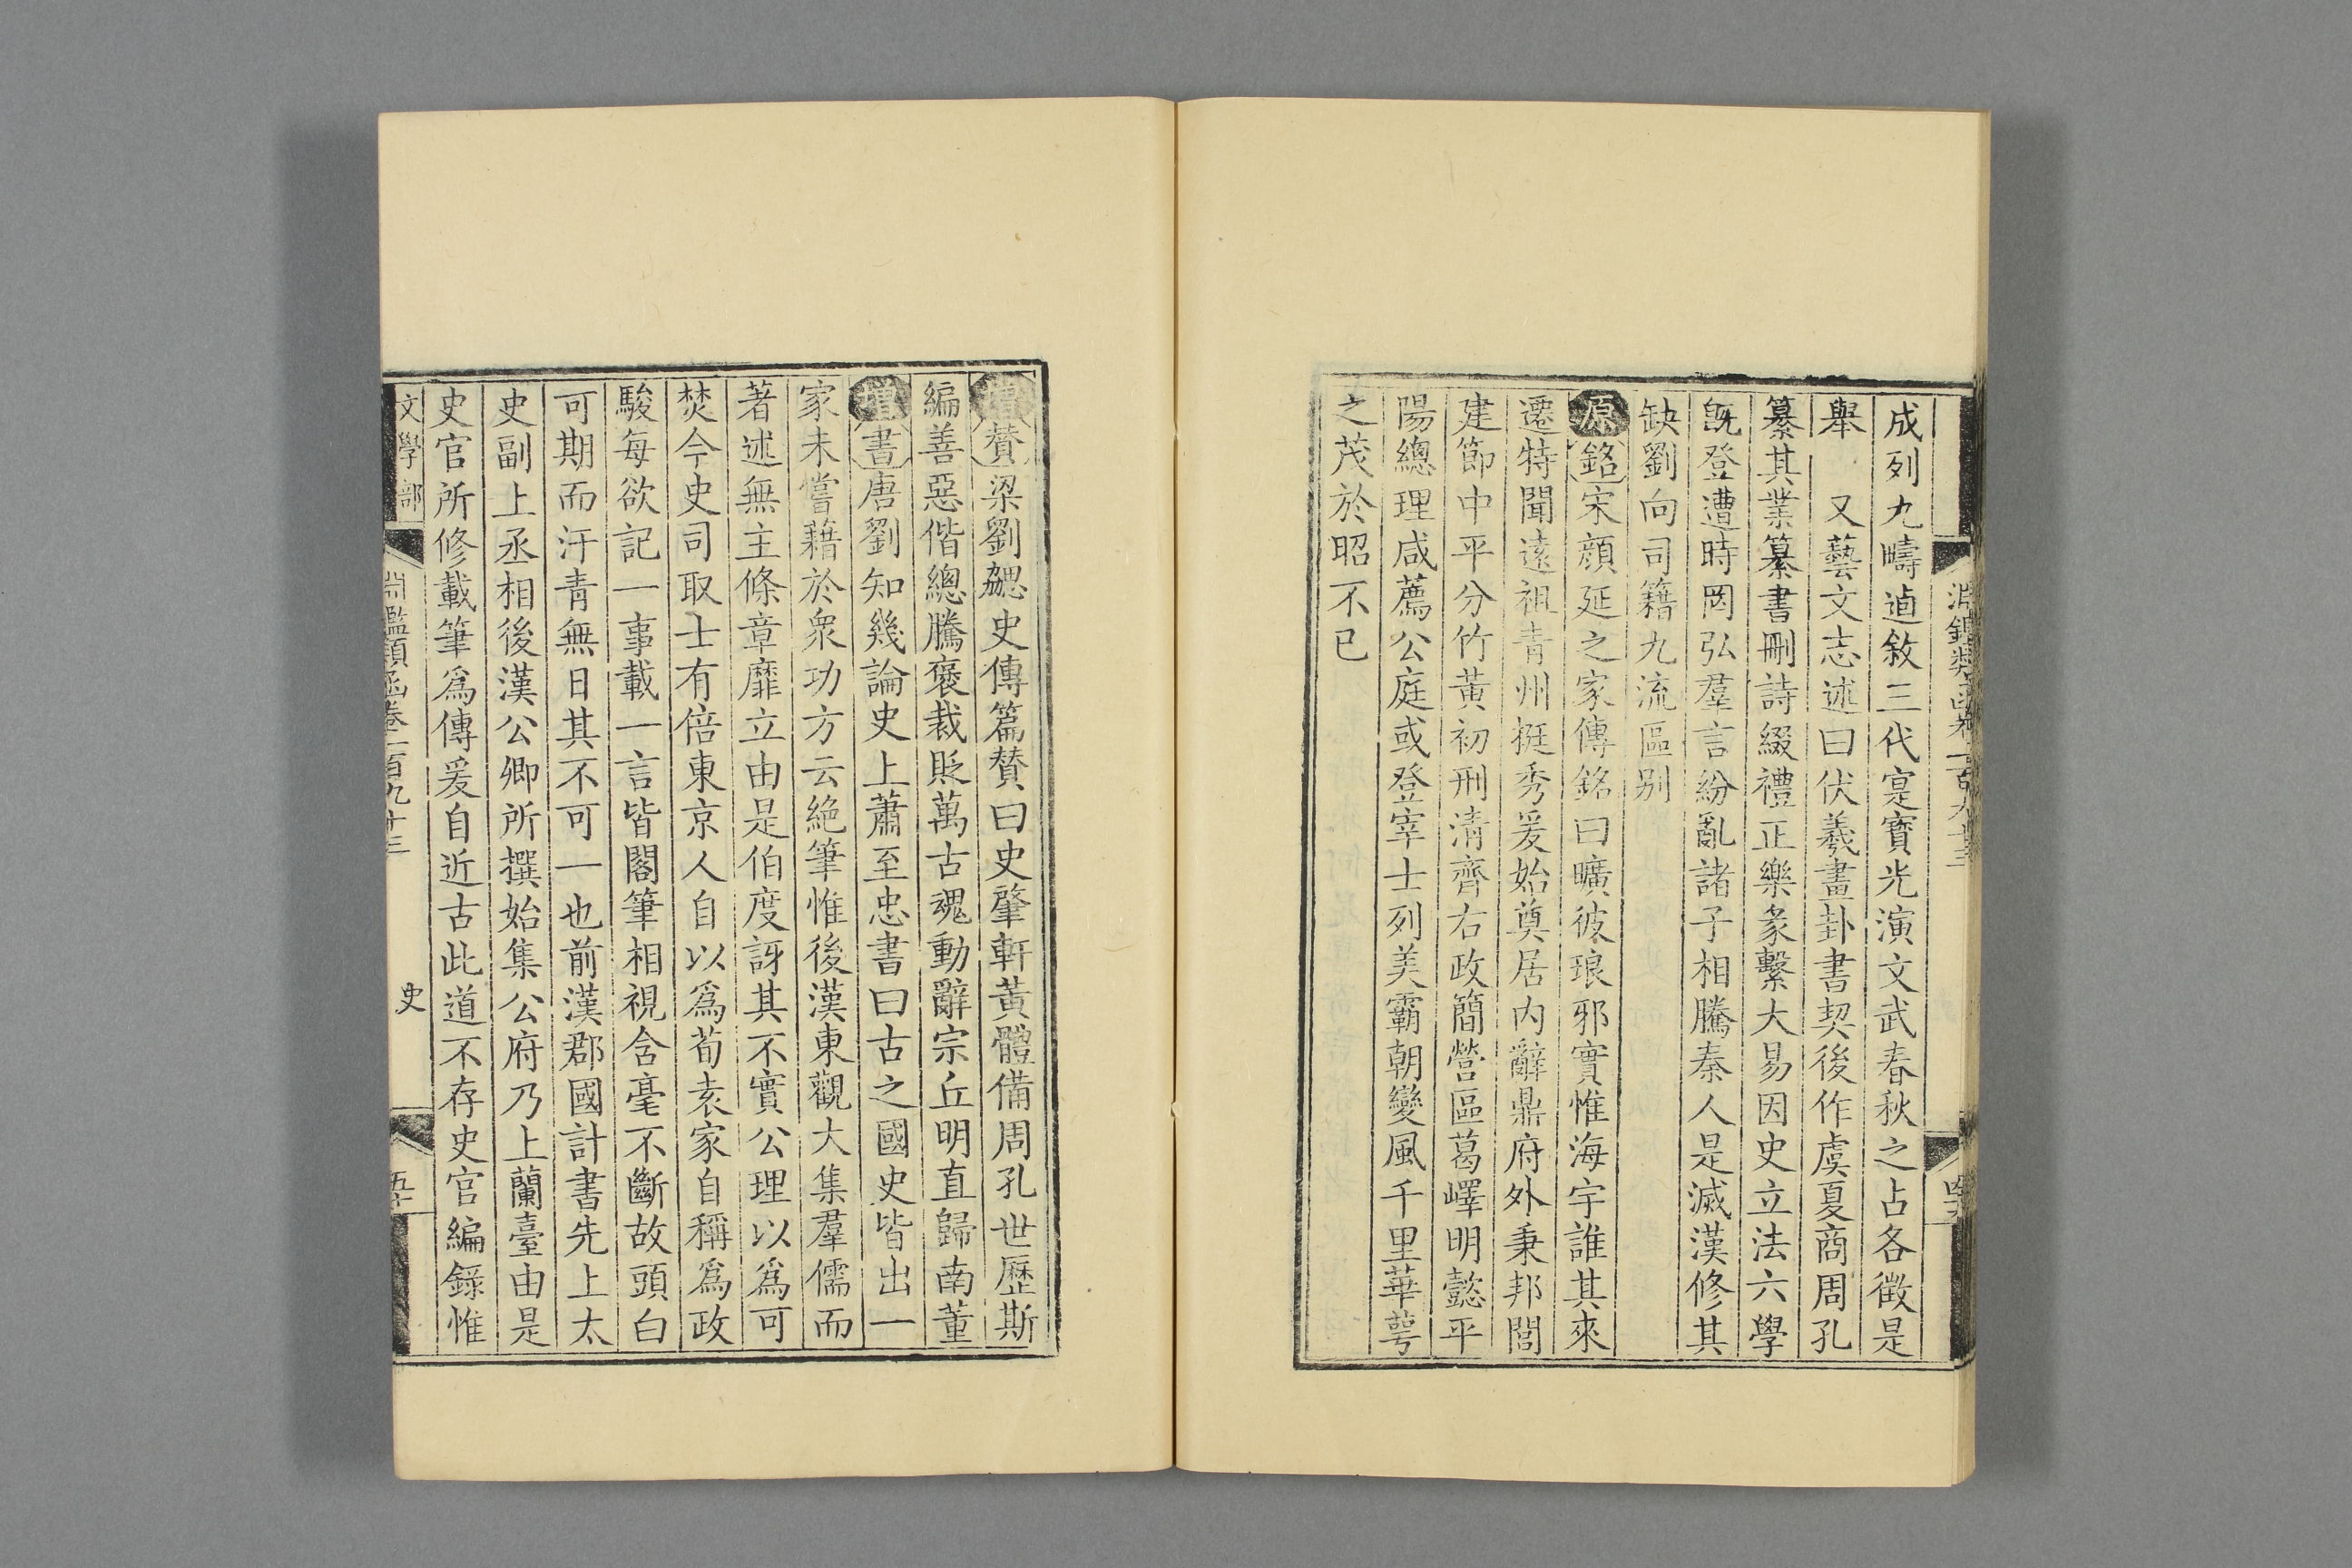 淵鑑類函卷一百九十三
成列九疇逌敘三代寔寶光演文武春秋之占各徵是
舉　又藝文志述曰伏羲畫卦書契後作虞夏商周孔
纂其業纂書刪詩綴禮正樂彖繫大易因史立法六學
旣登遭時罔弘羣言紛亂諸子相騰秦人是滅漢修其
缺劉向司籍九流區別
原銘宋顔延之家傳銘曰曠彼琅邪實惟海宇誰其來
遷特聞遠祖青州挺秀爰始奠居內辭鼎府外秉邦閭
建節中平分竹黃初刑清齊右政簡營區葛嶧明懿平
陽總理咸薦公庭或登宰士列美霸朝變風千里華萼
之茂於昭不已
增贊梁劉勰史傳篇贊曰史肇軒黃體備周孔世歷斯
編善惡偕總騰褒裁貶萬古魂動辭宗丘明直歸南董
增書唐劉知幾論史上蕭至忠書曰古之國史皆出一
家未嘗藉於衆功方云絶筆惟後漢東觀大集羣儒而
著述無主條章靡立由是伯度訝其不實公理以爲可
焚今史司取士有倍東京人自以爲荀袁家自稱爲政
駿每欲記一事載一言皆閣筆相視含毫不斷故頭白
可期而汗青無日其不可一也前漢郡國計書先上太
史副上丞相後漢公卿所撰始集公府乃上蘭臺由是
史官所修載筆爲傳爰自近古此道不存史官編錄惟
文學部
淵鑑類函卷一百九十三
史
五十